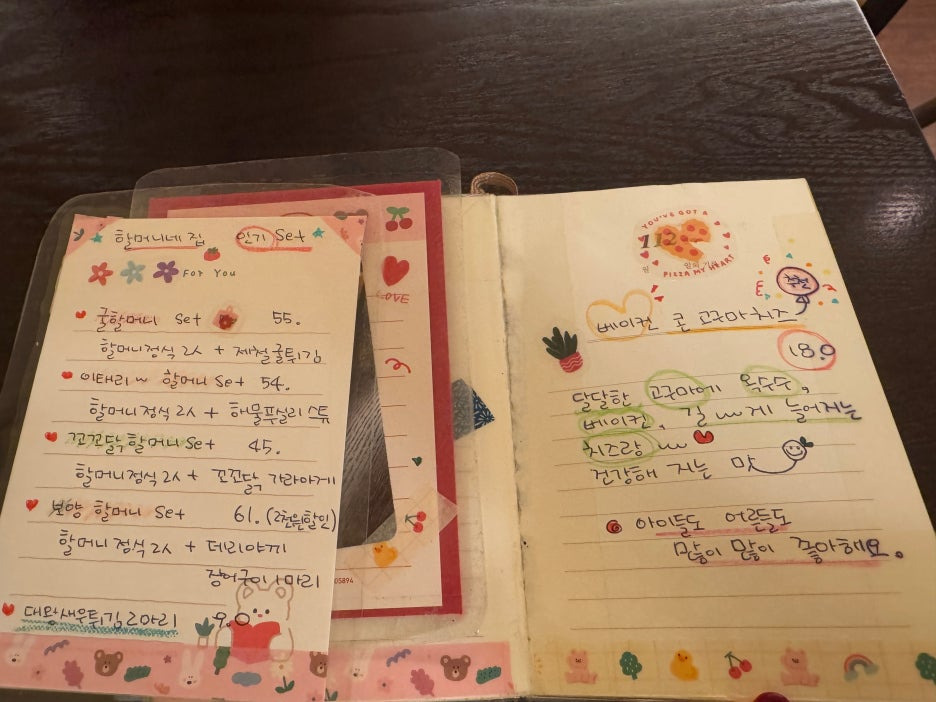 할머니네 집 인기 Set
FOR YOU
굴할머니 Set 55.
할머니정식 2人 + 제철굴튀김
이태리~ 할머니 Set 54.
할머니정식 2人 + 해물푸실리 스튜
꼬꼬닭 할머니 Set 45.
할머니정식 2人 + 꼬꼬닭 가라아게
보양 할머니 Set 61. (2천원할인)
할머니정식 2人 + 데리야끼
장어구이 1마리
대왕새우튀김 2마리 9.0
LOVE
05894
YOU'VE GOT A
112
PIZZA MY HEART
추천
베이컨 콘 고구마 치즈
18.0
달달한 고구마에 옥수수,
베이컨, 길~게 늘어지는
치즈랑~
건강해 지는 맛
아이들도 어른들도
많이 많이 좋아해요.